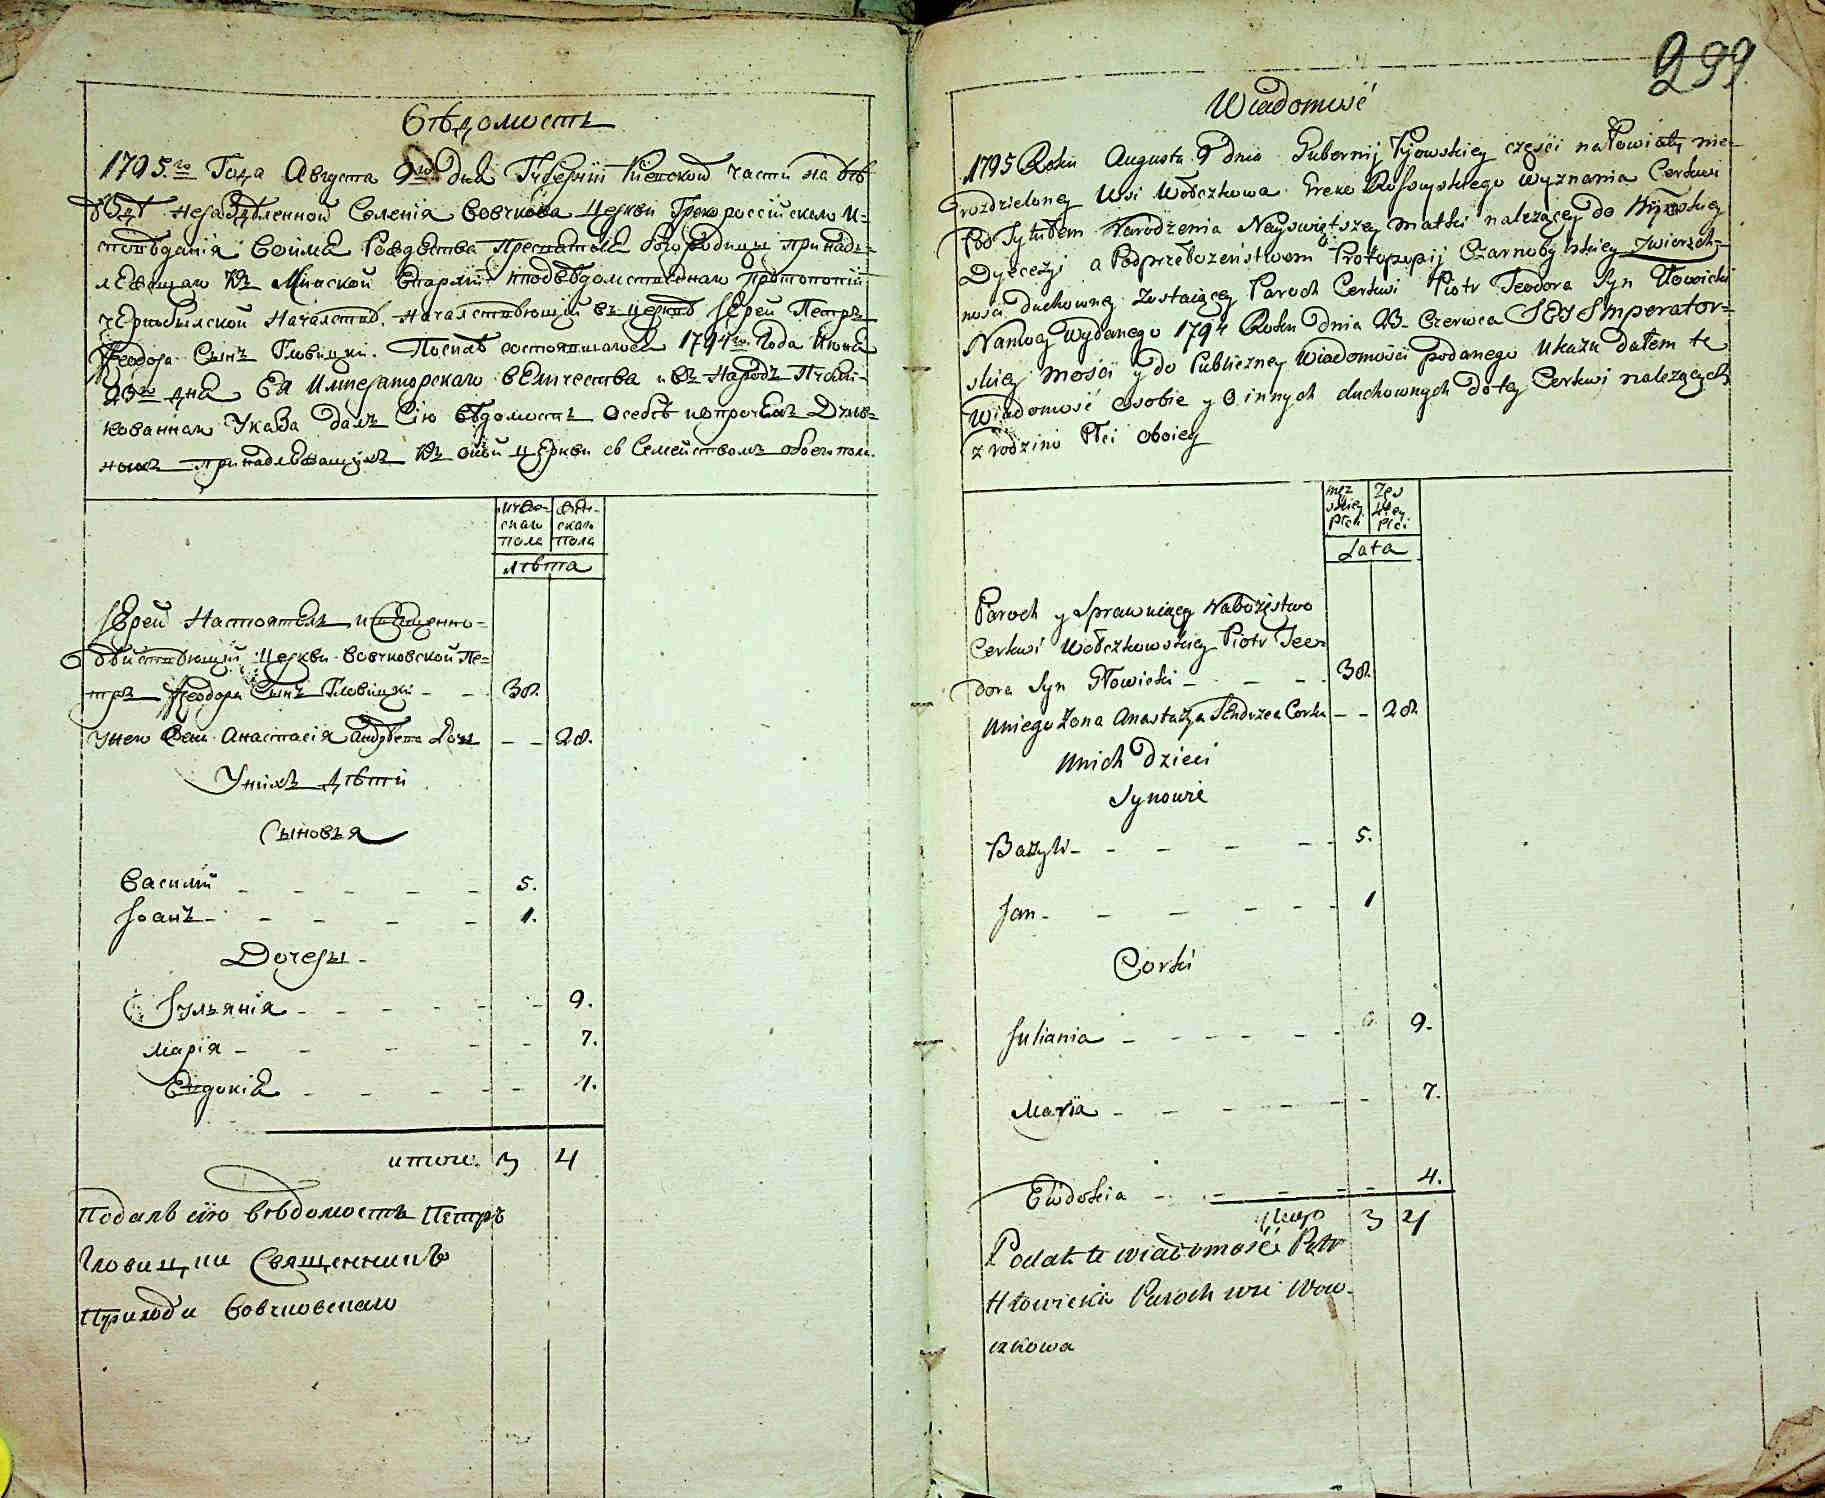 Вѣдомость
1795.го Года Августа 9го дня Губернїи Кїевской части на Повѣ
ты нераздѣленной Селенїя Вовчкова Церкви Грекороссїйскаго И-
сповѣданїя воимя Рождества Пресвятыя Богородицы принадъ-
лежащаго къ Минской Епархїи подвѣдомственнаго Протопопїи
Чернобылской Началства. Началствующїй въ церквѣ Іерей Петръ
Феодора Сынъ Гловицки. Послѣ состоявшагося 1794го Года Июня
23го дня Ея Императорскаго Величества и въ Народъ Публи-
кованнаго Указа далъ Сїю вѣдомость о себѣ и о прочихъ Духов-
ныхъ принадлежащихъ къ оной церкви съ Семействомъ обоего пола.
мужескаго пола
женскаго пола
лѣта
Іерей Настоятель и Священно-
дѣйствующїй Церкви Вовчковской Пе-
тръ Феодора Сынъ Гловицки - - 38.
Унего Жена Анастасїя Андрѣева Дочь - - 28.
Унихъ дѣти
Сыновья
Василїй - - - - - 5.
Іоанъ - - - - - 1.
Дочеры -
Іульянїя - - - - - - 9.
Марїя - - - - - 7.
Евдокїя - - - - - 4.
итого. 3 4
Подалъ сїю вѣдомость Петръ
Гловицки Священникъ
Приходи Вовчковскаго
299
Wiadomość
1795 Roku Augusta 9 dnia Gubernij Kijowskiey części na Powiaty nie-
rozdzieloney Wsi Wołczkowa Greko Rossyyskiego wyznania Cerkwi
Pod Tytułem Narodzenia Nayświętszey Matki należącey do Mińskiey
Dyecezyi a Podprzełożeństwem Protopopij Czarnobylskiey zwierzch-
ności duchowney zostaiącey Paroch Cerkwi Piotr Teodora Syn Głowicki
Namocy wydanego 1794 Roku Dnia 23 Czerwca JEY Imperator-
skiey Mości y do Publiczney Wiadomości podanego Ukazu dałem te
Wiadomość osobie y o innych duchownych do tey Cerkwi należących
z rodzino Płci oboiey
męzskiey Płci
Zeńskiey Płci
Lata
Paroch y Sprawuiący Nabożęstwo
Cerkwi Wołczkowskiey Piotr Teo-
dora Syn Głowicki - - - 38.
Uniego Zona Anastazya Andrzea Corka - - 28
Unich Dzieci
Synowie
Bazyli - - - - - - 5.
Jan - - - - - - 1
Corki
Juliania - - - - - - 9.
Marija - - - - - - 7.
Ewdokia - - - - - 4.
3 4
Podał te wiadomość Piotr
Hłowicki Paroch wsi Wow-
czkowa